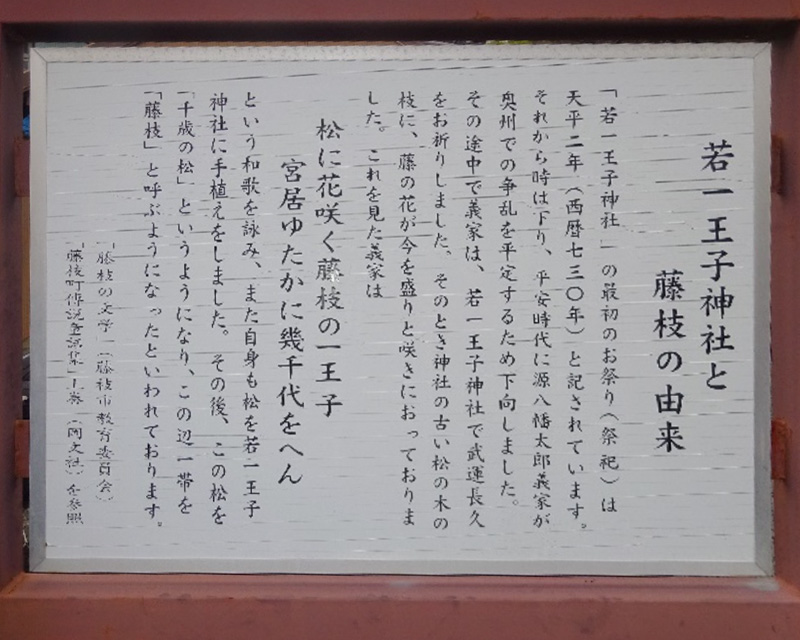 若一王子神社と
藤枝の由来
「若一王子神社」の最初のお祭り（祭祀）は
天平二年（西暦七三〇年）と記されています。
それから時は下り、平安時代に源八幡太郎義家が
奥州での争乱を平定するため下向しました。
その途中で義家は、若一王子神社で武運長久
をお祈りしました。そのとき神社の古い松の木の
枝に、藤の花が今を盛りと咲きにおっておりま
した。これを見た義家は
松に花咲く藤枝の一王子
宮居ゆたかに幾千代をへん
という和歌を詠み、また自身も松を若一王子
神社に手植えをしました。その後、この松を
「千歳の松」というようになり、この辺一帯を
「藤枝」と呼ぶようになったといわれております。
「藤枝の文学」（藤枝市教育委員会）
「藤枝町傳説童謡集」上巻（同文社）を参照